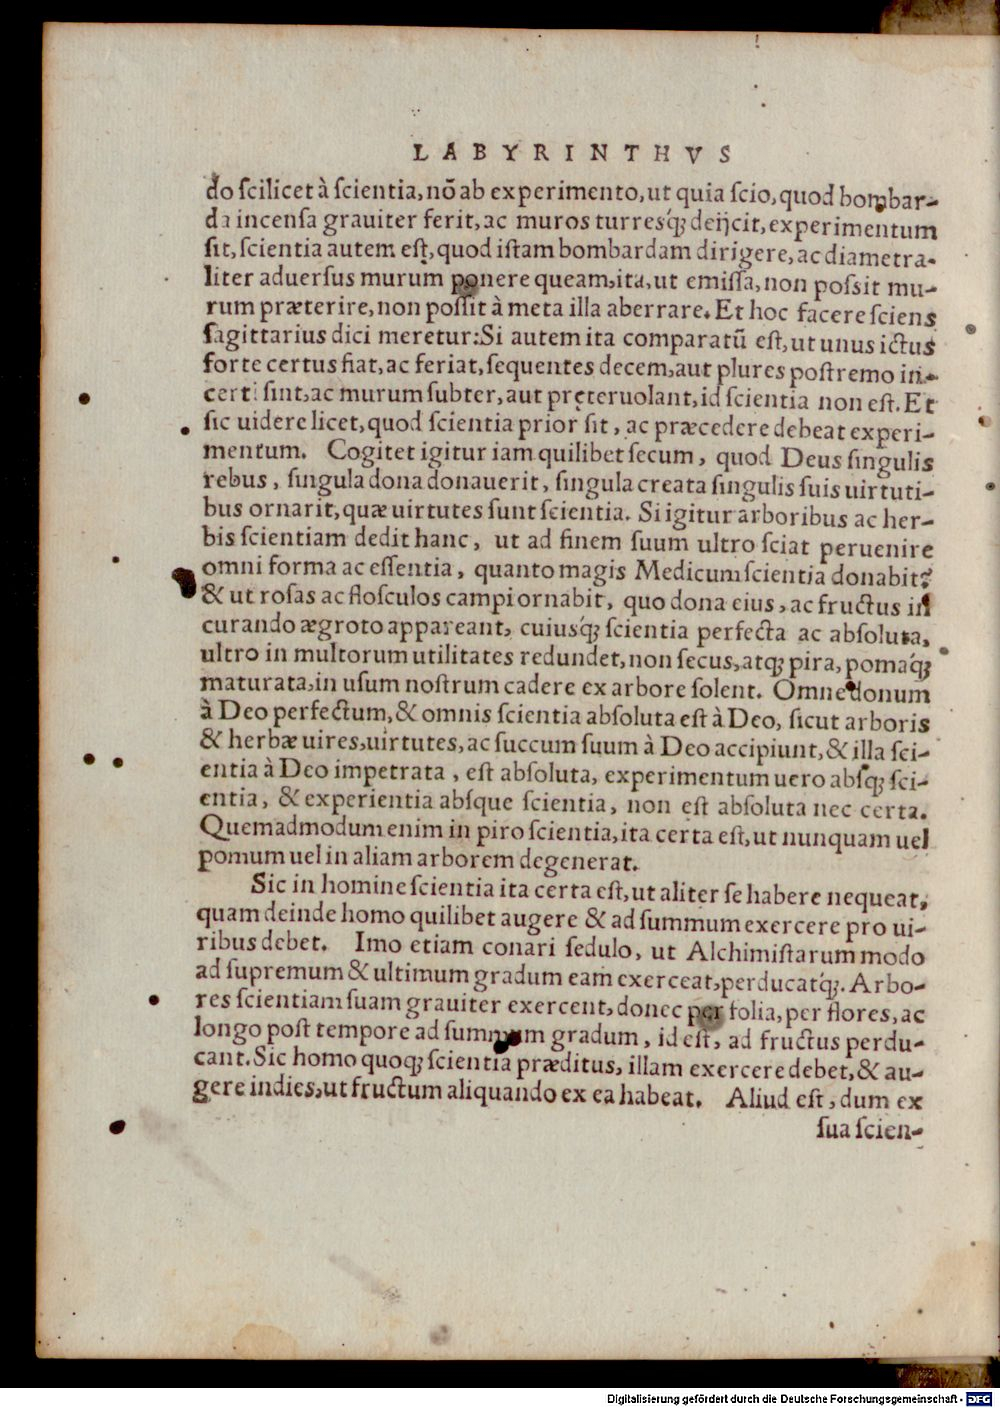 LABYRINTHVS
do scilicet à scientia, nõ ab experimento, ut quia scio, quod bombar-
da incensa grauiter ferit, ac muros turresq́; deijcit, experimentum
sit, scientia autem est, quod istam bombardam dirigere, ac diametra-
liter aduersus murum ponere queam, ita, ut emissa, non possit mu-
rum præterire, non possit à meta illa aberrare. Et hoc facere sciens
sagittarius dici meretur: Si autem ita comparatũ est, ut unus ictus
forte certus fiat, ac feriat, sequentes decem, aut plures postremo in-
certi sint, ac murum subter, aut pręteruolant, id scientia non est. Et
sic uidere licet, quod scientia prior sit, ac præcedere debeat experi-
mentum. Cogitet igitur iam quilibet secum, quod Deus singulis
rebus, singula dona donauerit, singula creata singulis suis uirtuti-
bus ornarit, quæ uirtutes sunt scientia. Si igitur arboribus ac her-
bis scientiam dedit hanc, ut ad finem suum ultro sciat peruenire
omni forma ac essentia, quanto magis Medicum scientia donabit?
& ut rosas ac flosculos campi ornabit, quo dona eius, ac fructus in
curando ægroto appareant, cuiusq́; scientia perfecta ac absoluta,
ultro in multorum utilitates redundet, non secus, atq; pira, pomaq́;
maturata, in usum nostrum cadere ex arbore solent. Omne donum
à Deo perfectum, & omnis scientia absoluta est à Deo, sicut arboris
& herbæ uires, uirtutes, ac succum suum à Deo accipiunt, & illa sci-
entia à Deo impetrata, est absoluta, experimentum uero absq; sci-
entia, & experientia absque scientia, non est absoluta nec certa.
Quemadmodum enim in piro scientia, ita certa est, ut nunquam uel
pomum uel in aliam arborem degenerat.
Sic in homine scientia ita certa est, ut aliter se habere nequeat,
quam deinde homo quilibet augere & ad summum exercere pro ui-
ribus debet. Imo etiam conari sedulo, ut Alchimistarum modo
ad supremum & ultimum gradum eam exerceat, perducatq́;. Arbo-
res scientiam suam grauiter exercent, donec per folia, per flores, ac
longo post tempore ad summum gradum, id est, ad fructus perdu-
cant. Sic homo quoq; scientia præditus, illam exercere debet, & au-
gere indies, ut fructum aliquando ex ea habeat. Aliud est, dum ex
sua scien-
Digitalisierung gefördert durch die Deutsche Forschungsgemeinschaft - DFG